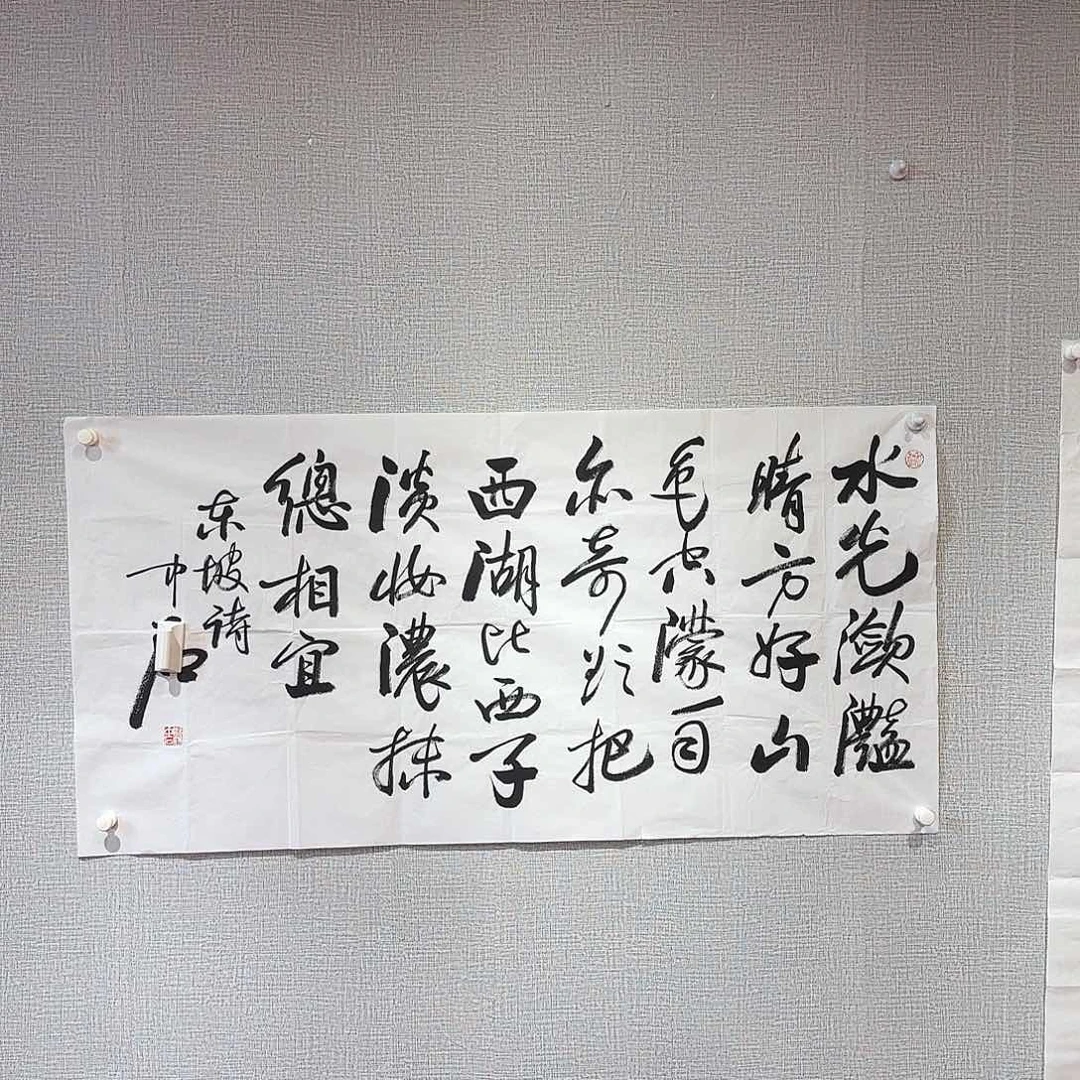 水光潋灩
晴方好山
色空濛雨
亦奇欲把
西湖比西子
淡妆濃抹
總相宜
东坡诗
中石